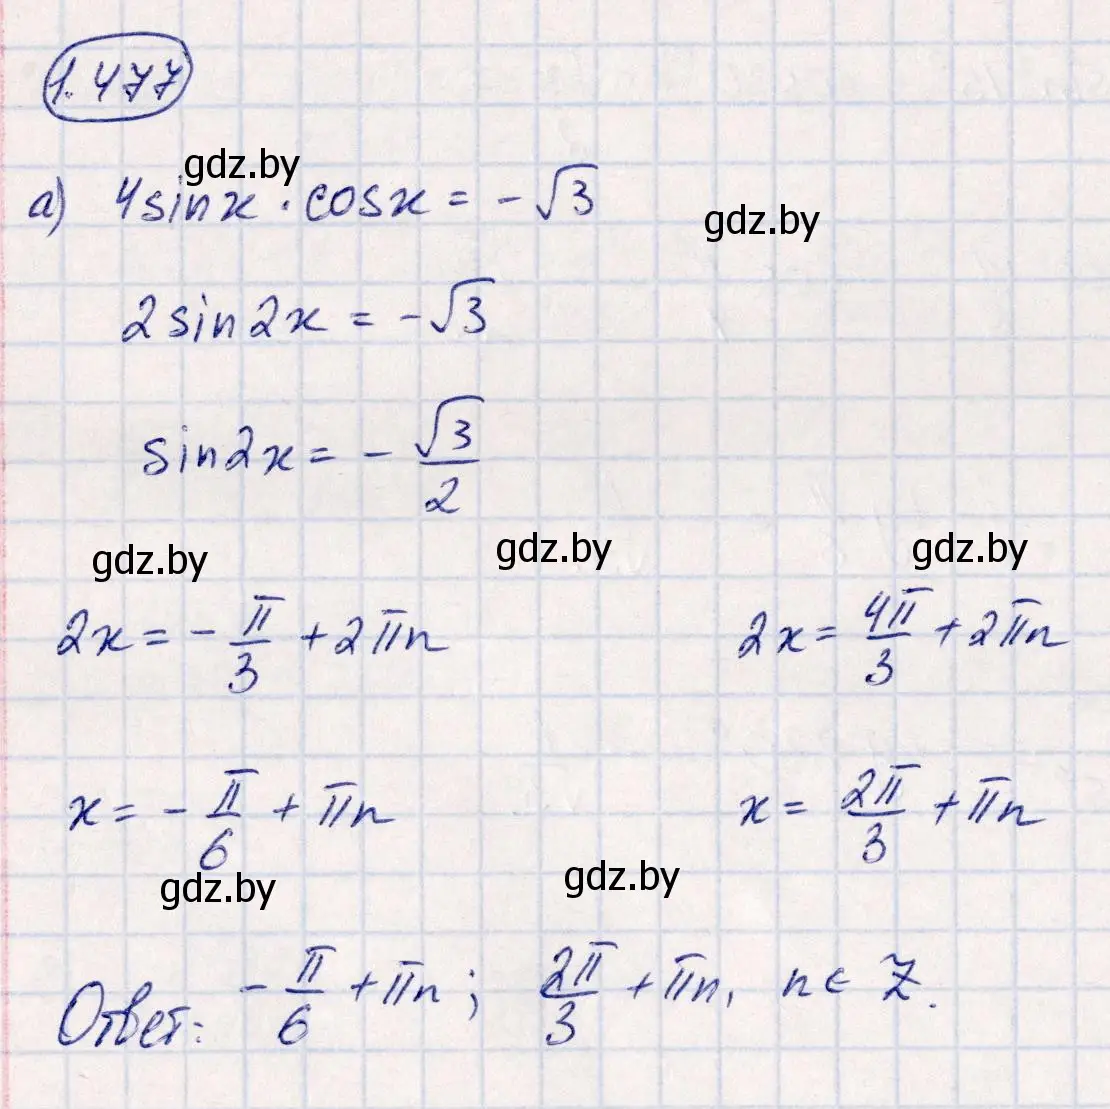 1.477
gdz.by
а) 4sinx · cosx = -√3
gdz.by
2sin2x = -√3
sin2x = - √3/2
gdz.by gdz.by gdz.by
2x = - π/3 + 2πn 2x = 4π/3 + 2πn
x = - π/6 + πn x = 2π/3 + πn
gdz.by gdz.by
Ответ: - π/6 + πn; 2π/3 + πn, n ∈ Z.